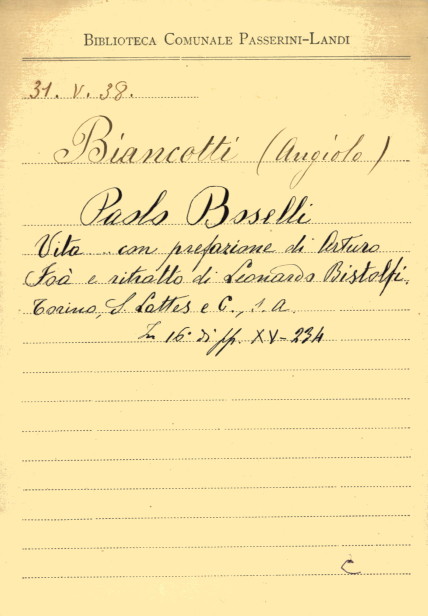 BIBLIOTECA COMUNALE PASSERINI-LANDI
31. V. 38.
Biancotti (Angiolo)
Paolo Boselli
Vita .. con prefazione di Arturo
Foà e ritratto di Leonardo Bistolfi.
Torino, S. Lattes e C., s. a.
In 16° di pp. XV-234
C